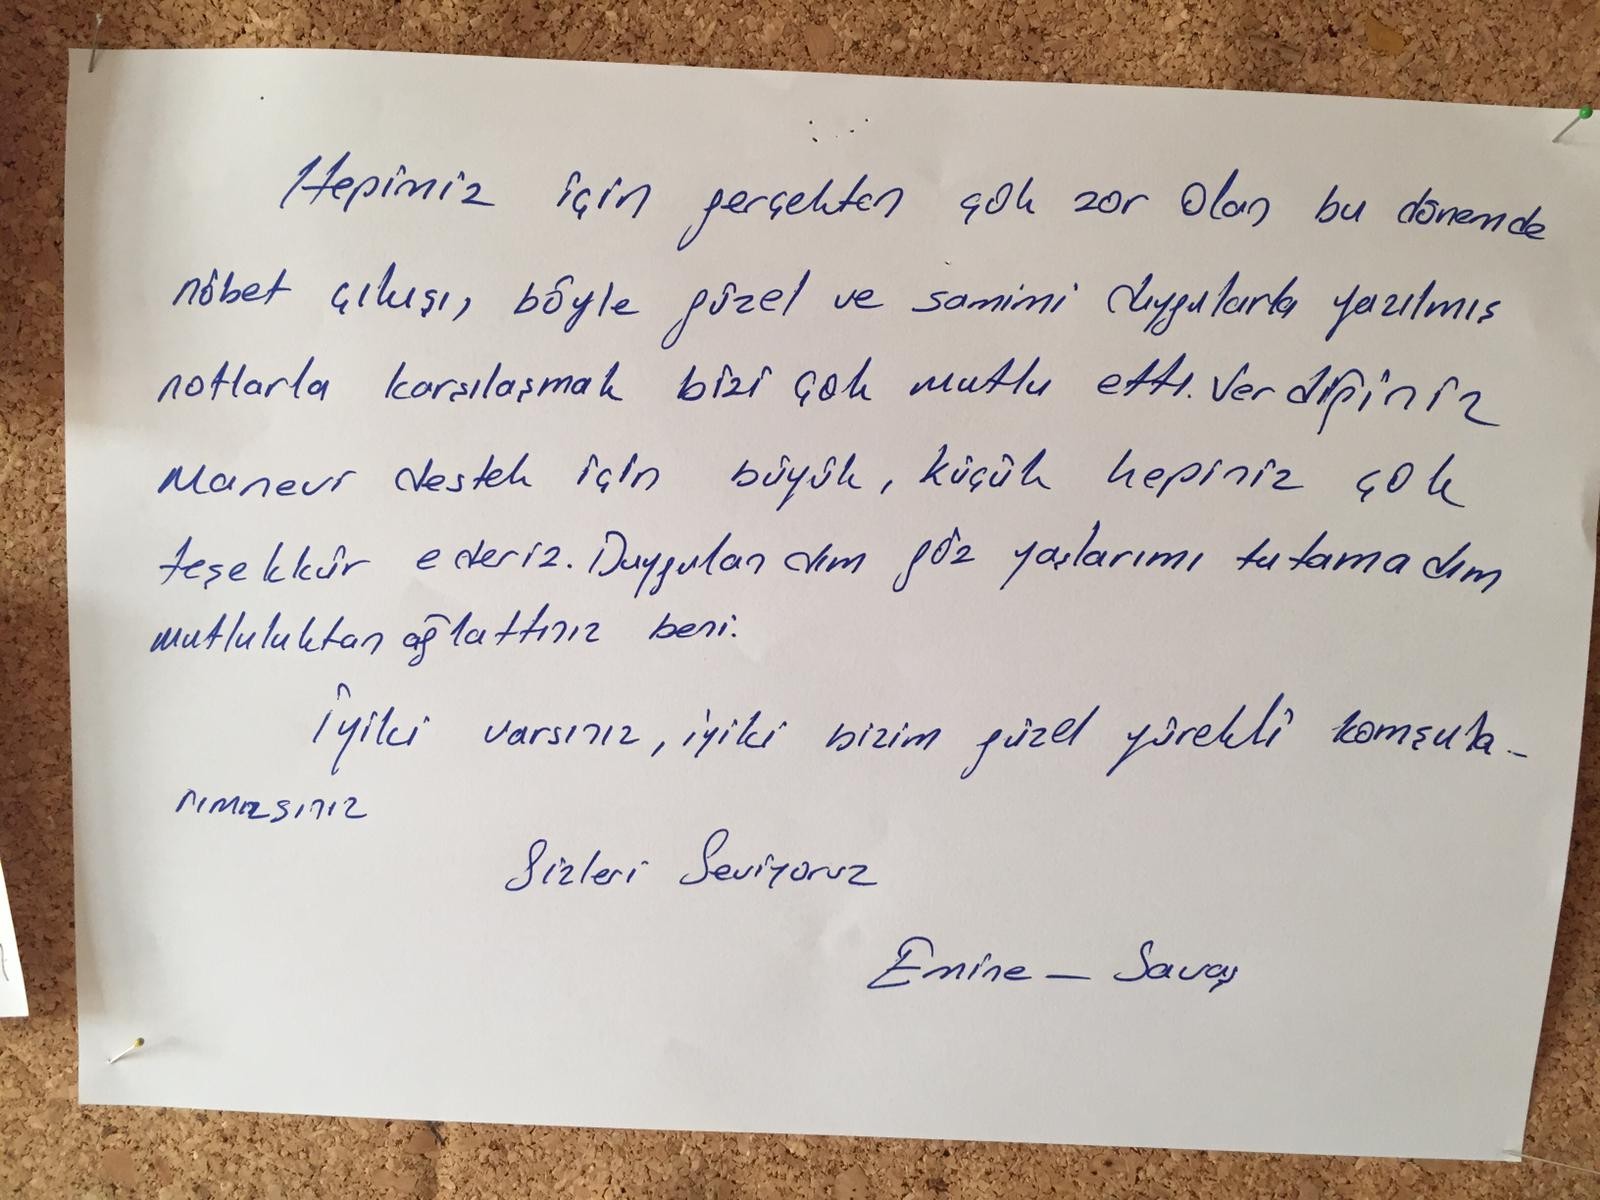 Hepimiz için gerçekten çok zor olan bu dönemde
nöbet çıkışı, böyle güzel ve samimi duygularla yazılmış
notlarla karşılaşmak bizi çok mutlu etti. Verdiğiniz
manevi destek için büyük, küçük hepiniz çok
teşekkür ederiz. Duygulandım göz yaşlarımı tutamadım
mutluluktan ağlattınız beni.
İyiki varsınız, iyiki bizim güzel yürekli komşula-
rımızsınız
Sizleri Seviyoruz
Emine - Savaş